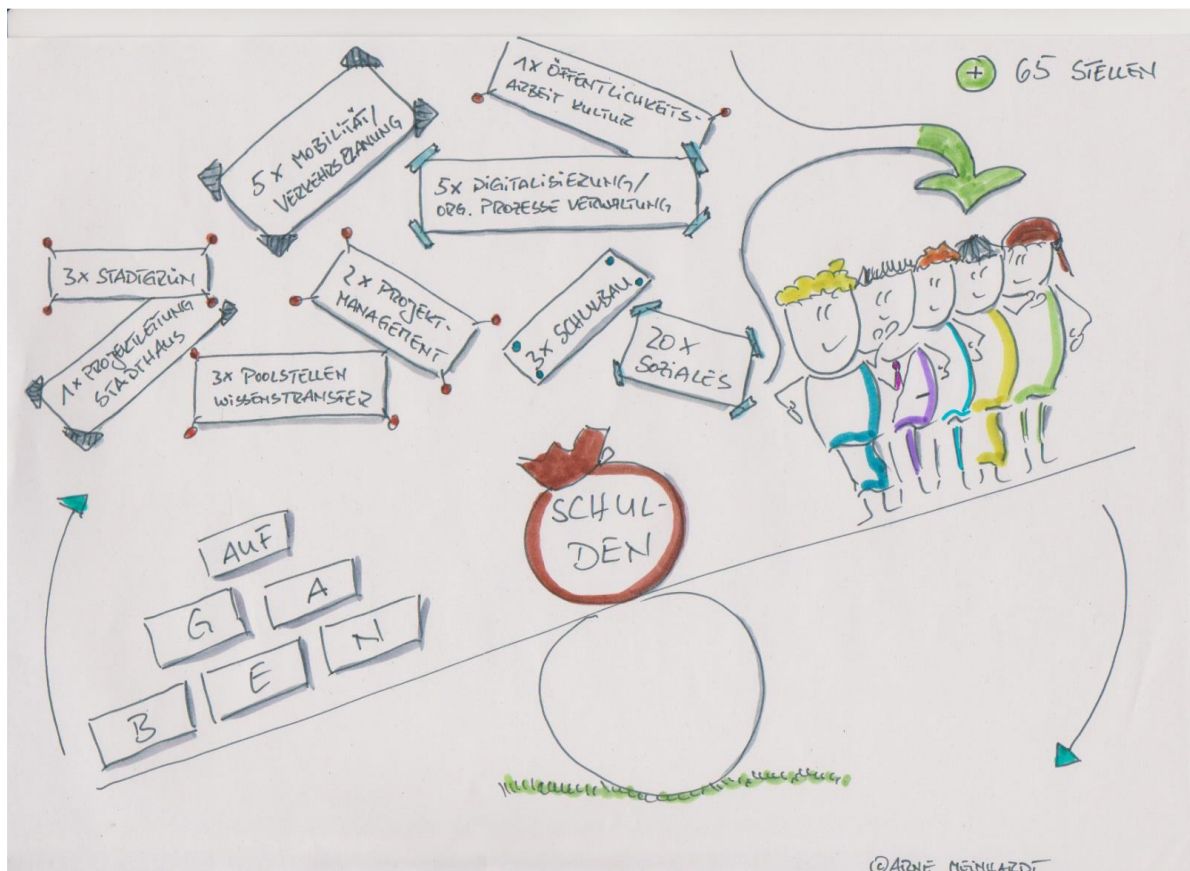 1X ÖFFENTLICHKEITS-
ARBEIT KULTUR
+ 65 STELLEN
5X MOBILITÄT/
VERKEHRSPLANUNG
5X DIGITALISIERUNG/
ORG. PROZESSE VERWALTUNG
3X STADTGRÜN
2X PROJEKT-
MANAGEMENT
3X SCHULBAU
20X
SOZIALES
1X PROJEKTLEITUNG
STADTHAUS
3X POOLSTELLEN
WISSENSTRANSFER
SCHUL-
DEN
AUF
G A
B E N
©ARNE MEINHARDT